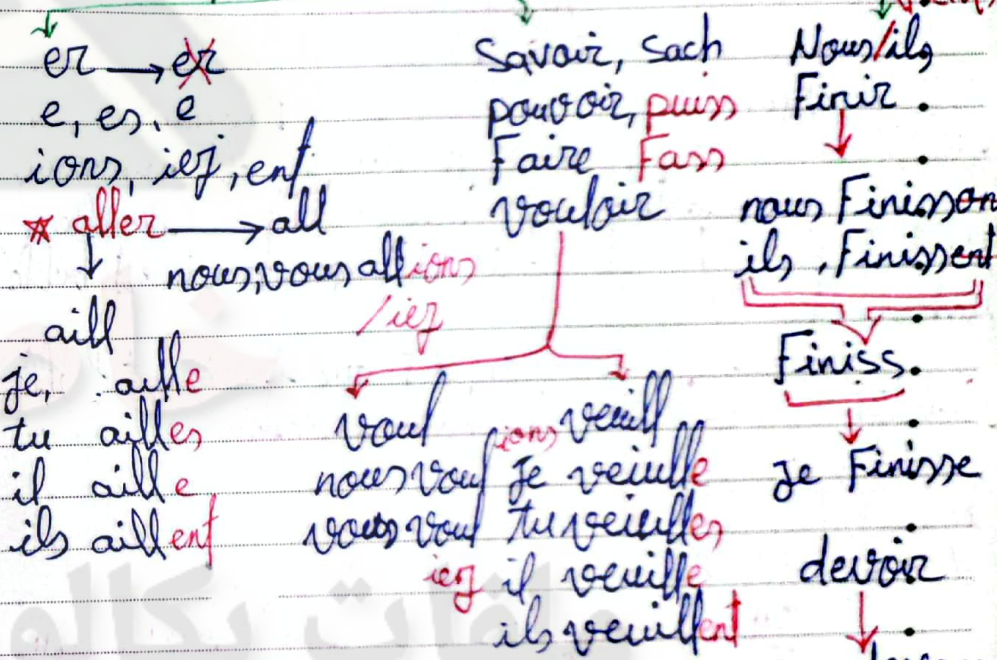 er → er
e, es, e
ions, iez, ent
* aller → all
nous, vous allions
/iez
aill
je, aille
tu ailles
il aille
ils aillent
Savoir, Sach
pouvoir, puiss
Faire Fass
vouloir
voul
nous voulions
vous vouliez
veuill
je veuille
tu veuilles
il veuille
ils veuillent
Nous/ils
Finir
nous Finisson
ils, Finissent
Finiss
je Finisse
devoir